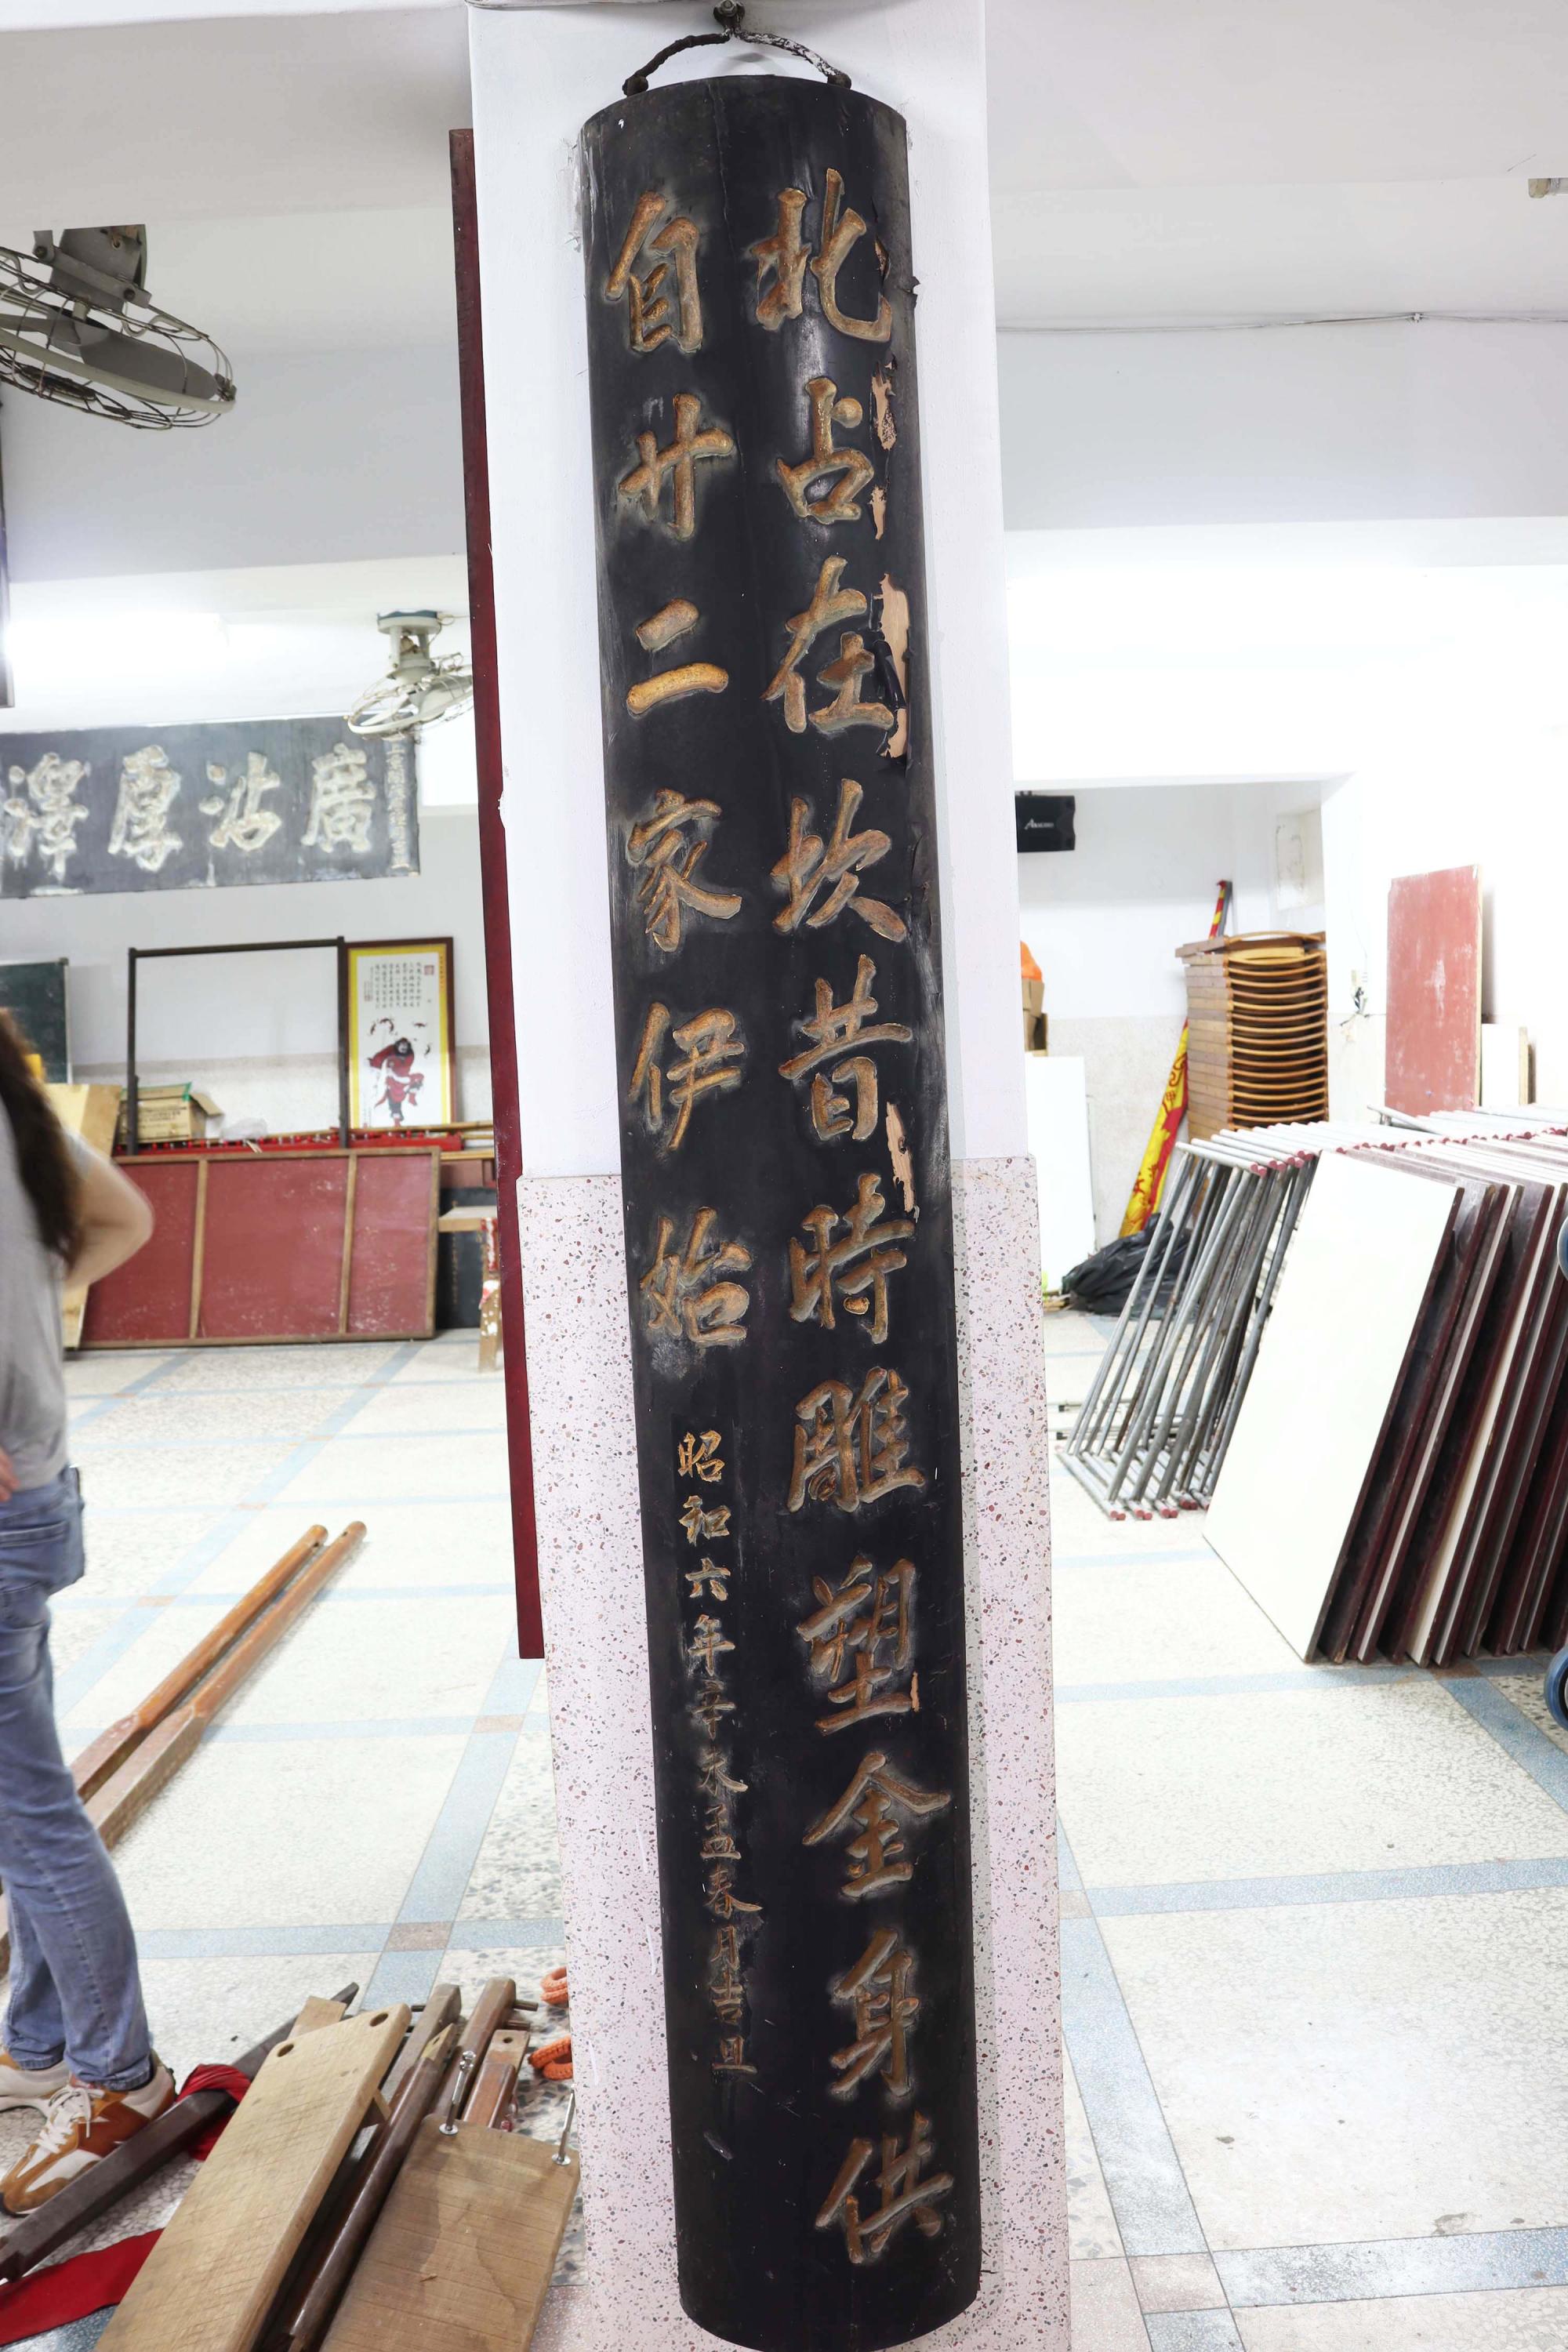 北占在坎昔時雕塑金身供
自廿二家伊始
昭和六年辛未孟春月吉旦
廣沾厚澤